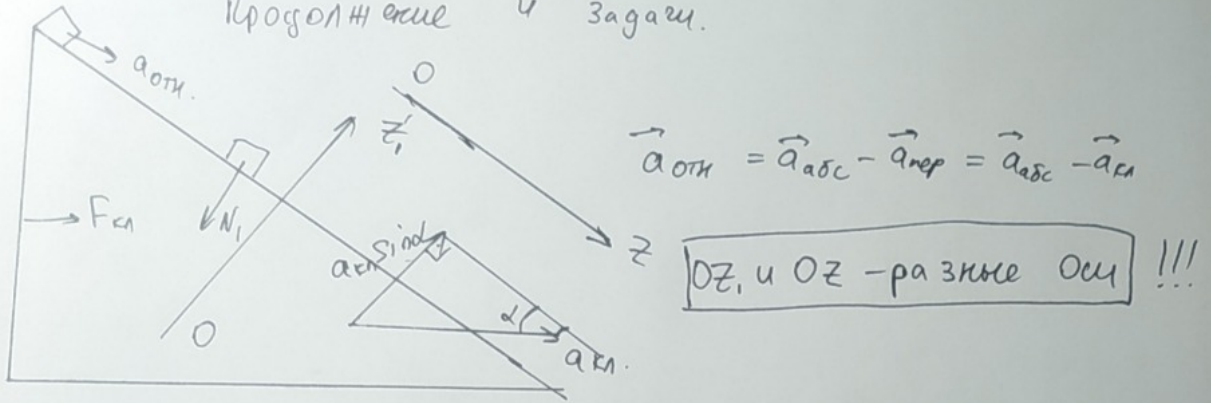 Продолжение 4 задачи.
aотн.
O
Z₁'
a⃗отн = a⃗абс - a⃗пер = a⃗абс - a⃗кл
Fкл
N₁
aкл sinα
Z
OZ₁ и OZ - разные оси !!!
α
O
aкл.